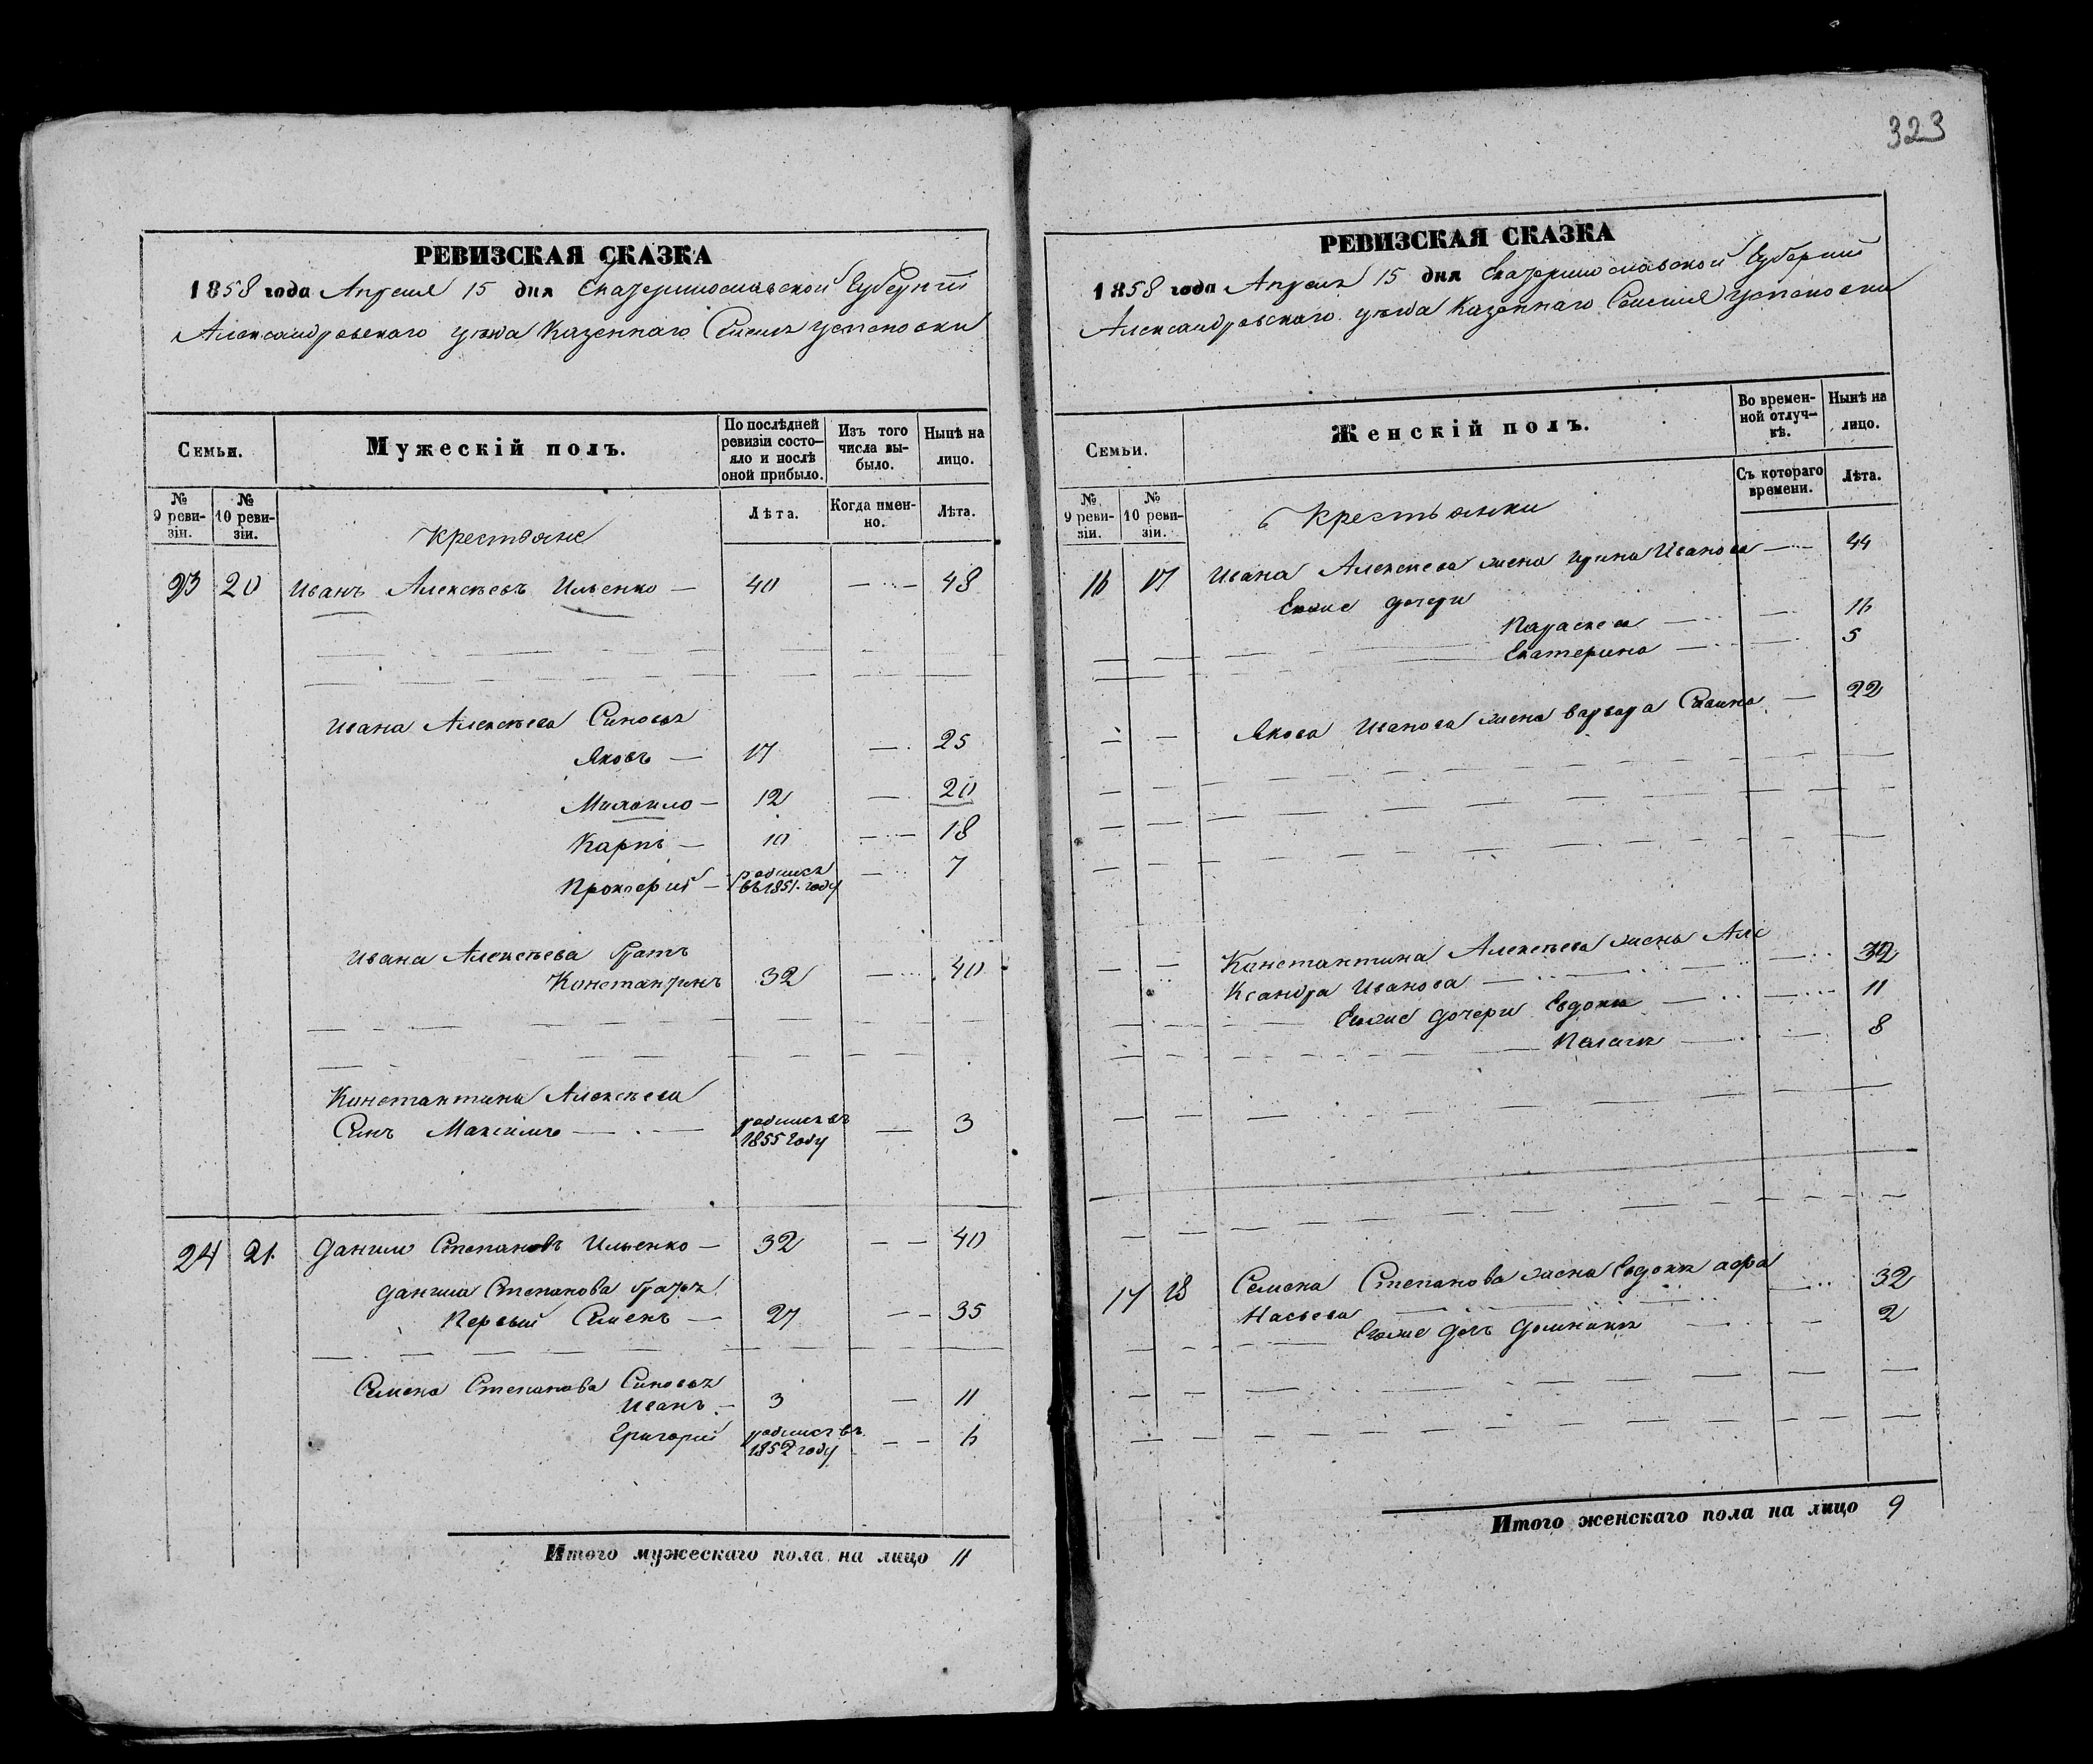 323
РЕВИЗСКАЯ СКАЗКА
1858 года Апреля 15 дня Екатеринославской Губерніи
Александровскаго уезда Казеннаго Селенія Успеновки
Семьи.
Мужескій полъ.
По послѣдней ревизіи состояло и послѣ оной прибыло.
Изъ того числа выбыло.
Нынѣ на лицо.
№ 9 ревизіи.
№ 10 ревизіи.
Лѣта.
Когда именно.
Лѣта.
Крестьяне
23 20 Иванъ Алексѣевъ Ильенко — 40 — 48
Ивана Алексѣева Сыновья
Яковъ — 17 — 25
Михайло — 12 — 20
Карпъ — 10 — 18
Прокофій — родился въ 1851 году — 7
Ивана Алексѣева братъ
Константинъ 32 — 40
Константина Алексѣева
Сынъ Максимъ — родился въ 1855 году — 3
24 21. Данило Степановъ Ильенко — 32 — 40
Данила Степанова братья
Первый Семенъ — 27 — 35
Семена Степанова Сыновья
Иванъ — 3 — 11
Григорій родился въ 1852 году — 6
Итого мужескаго пола на лицо 11
РЕВИЗСКАЯ СКАЗКА
1858 года Апреля 15 дня Екатеринославской Губерніи
Александровскаго уезда Казеннаго Селенія Успеновки
Семьи.
Женскій полъ.
Во временной отлучкѣ.
Нынѣ на лицо.
№ 9 ревизіи.
№ 10 ревизіи.
Съ котораго времени.
Лѣта.
Крестьянки
16 17 Ивана Алексѣева жена Ирина Иванова — 44
Егоже дочери
Параскева — 16
Екатерина — 5
Якова Иванова жена Варвара — 22
Константина Алексѣева жена Але
Ксандра Иванова — 39
Егоже дочери Евдокія — 11
Пелагея — 8
17 18 Семена Степанова жена Евдокія Афа
Насьева — 32
Егоже дочь Домникія — 2
Итого женскаго пола на лицо 9